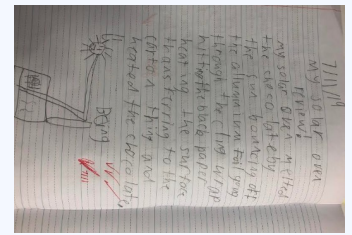 7/11/19
My solar oven
review!
my solar oven melted
the chocolate by
the sun bouncing off
the alluminium foil going
through the cling wrap
hit the black paper
heating the surface
transferring to the
carton thing and
heated the chocolate.